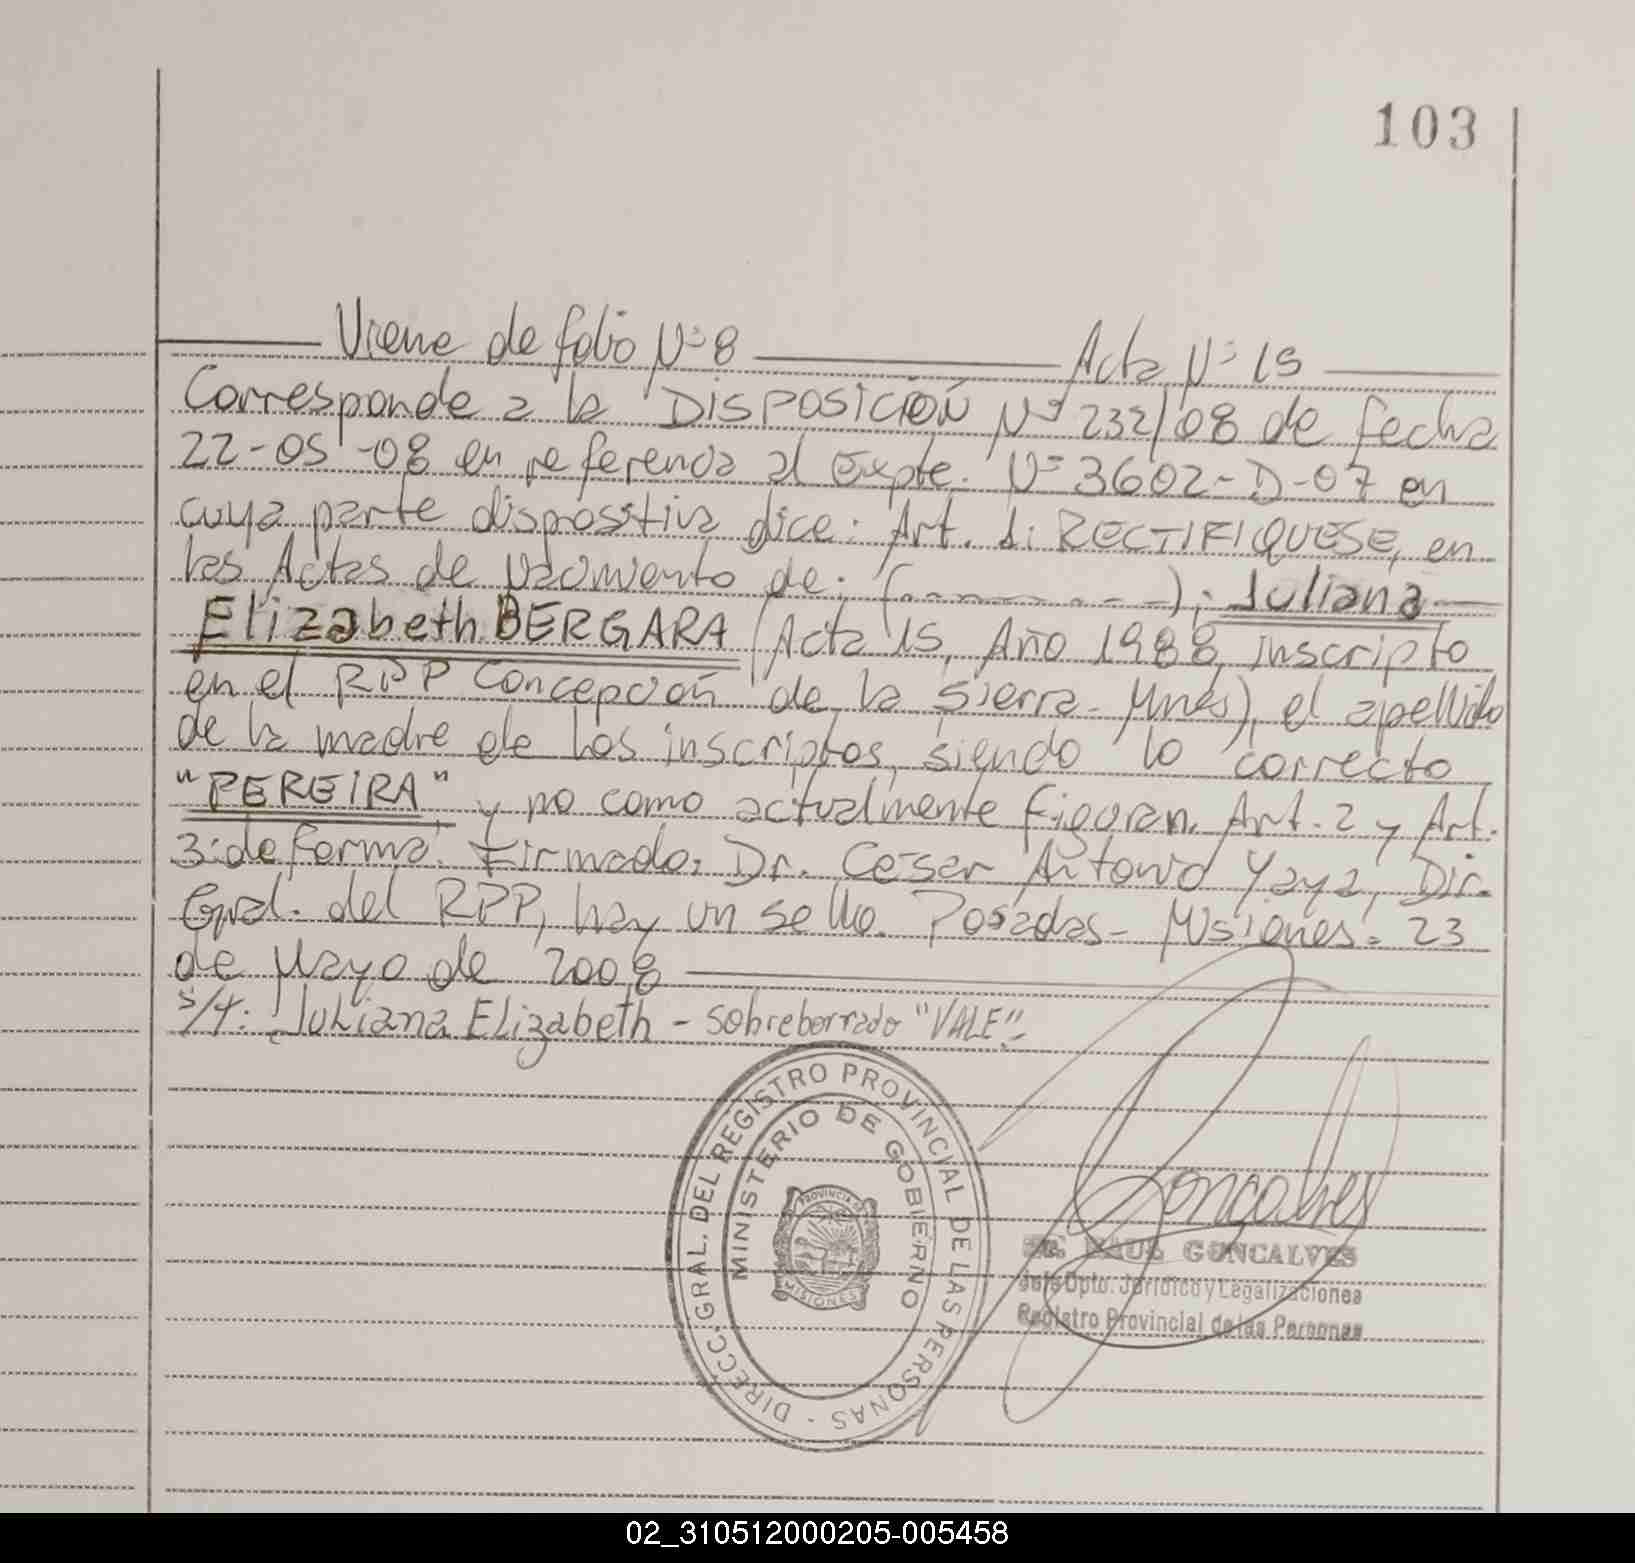 103
Viene de folio Nº 8 Acta Nº 15
Corresponde a la DISPOSICIÓN Nº 232/08 de fecha
22-05-08 en referencia al Expte. Nº 3602-D-07 en
cuya parte dispositiva dice: Art. 1: RECTIFIQUESE, en
las Actas de Nacimiento de: (---------); Juliana
Elizabeth BERGARA (Acta 15, Año 1988, inscripto
en el RPP Concepción de la Sierra - Mnes), el apellido
de la madre de los inscriptos, siendo lo correcto
"PEREIRA" y no como actualmente figuran. Art. 2 y Art.
3: de forma. Firmado: Dr. Cesar Antonio Yaya, Dir.
Gral. del RPP, hay un sello. Posadas - Misiones. 23
de Mayo de 2008
S/T: Juliana Elizabeth - sobreborrado "VALE".
DIRECC. GRAL. DEL REGISTRO PROVINCIAL DE LAS PERSONAS -
MINISTERIO DE GOBIERNO
PROVINCIA DE
MISIONES
Goncalves
RAUL GONCALVES
Jefe Dpto. Jurídico y Legalizaciones
Registro Provincial de las Personas
02_310512000205-005458